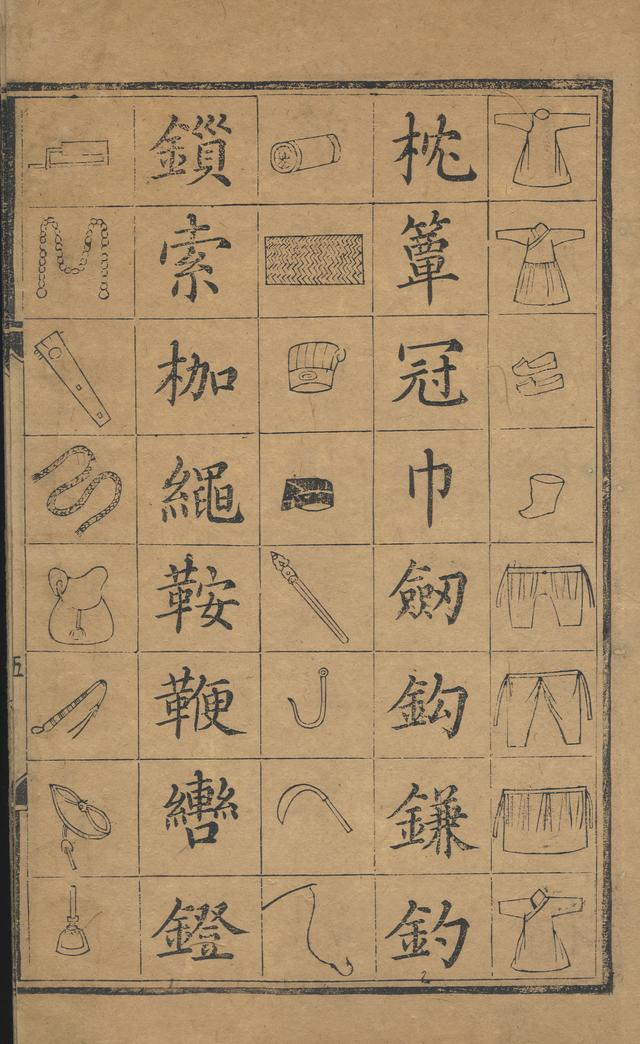 枕簟冠巾劔鈎鎌釣
鎻索枷繩鞍鞭轡鐙
五